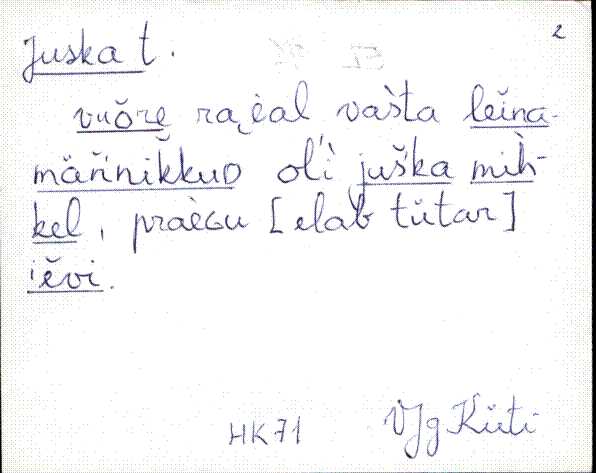 2
Juska t.
vuŏre raèal vašta leĭna-
männikkuD oli juška mih-
kel, praègu [elab tütar]
ĕvi.
HK71 VJg Küti